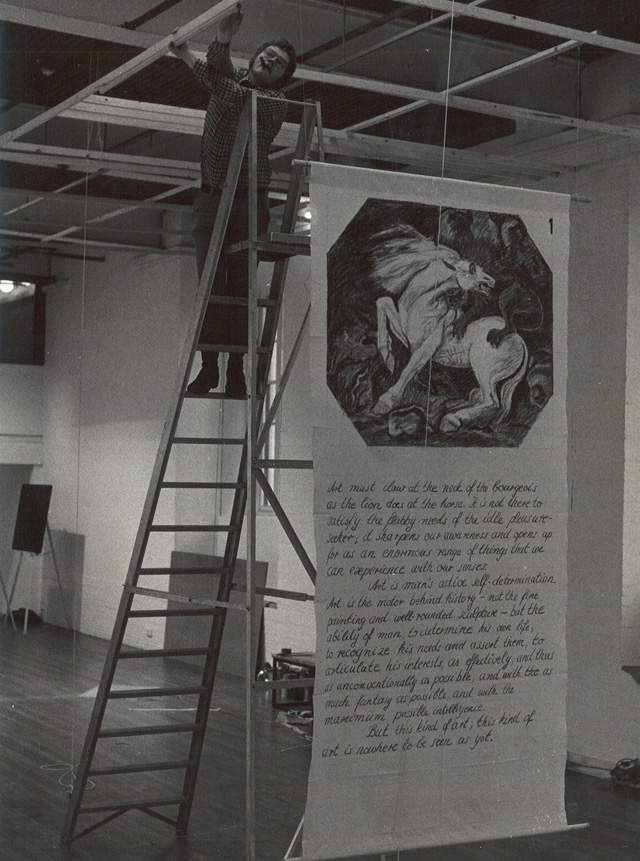 1
Art must claw at the neck of the bourgeois
as the lion does at the horse. It is not there to
satisfy the flabby needs of the idle pleasure-
seeker; it sharpens our awareness and opens up
for as an enormous range of things that we
can experience with our senses.
Art is man's active self-determination.
Art is the motor behind history - not the fine
painting and well-rounded sculpture - but the
ability of man, to determine his own life,
to recognize his needs and assert them, to
articulate his interests, as effectively, and thus
as unconventionally as possible, and with the as
much fantasy as possible, and with the
maximum possible intelligence.
But this kind of art, this kind of
art is nowhere to be seen as yet.